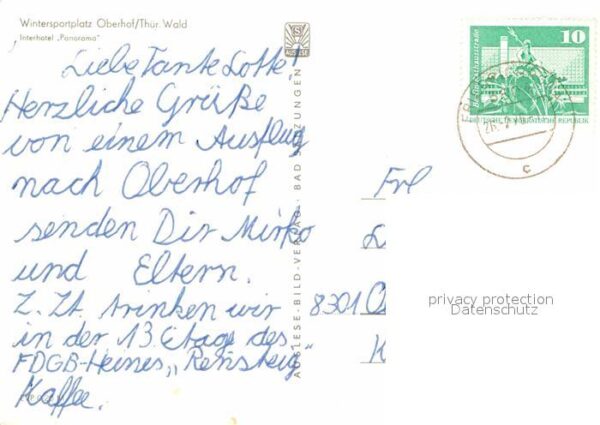 Wintersportplatz Oberhof/Thür. Wald
Interhotel „Panorama"
Liebe Tante Lotte!
Herzliche Grüße
von einem Ausflug
nach Oberhof
senden Dir Mirko
und Eltern.
Z. Zt. trinken wir
in der 13. Etage des
FDGB-Heimes „Rennsteig"
Kaffee.
AUSLESE-BILD-VERLAG · BAD SALZUNGEN
AUSLESE
10
DEUTSCHE DEMOKRATISCHE REPUBLIK
c
Frl
8301
privacy protection
Datenschutz